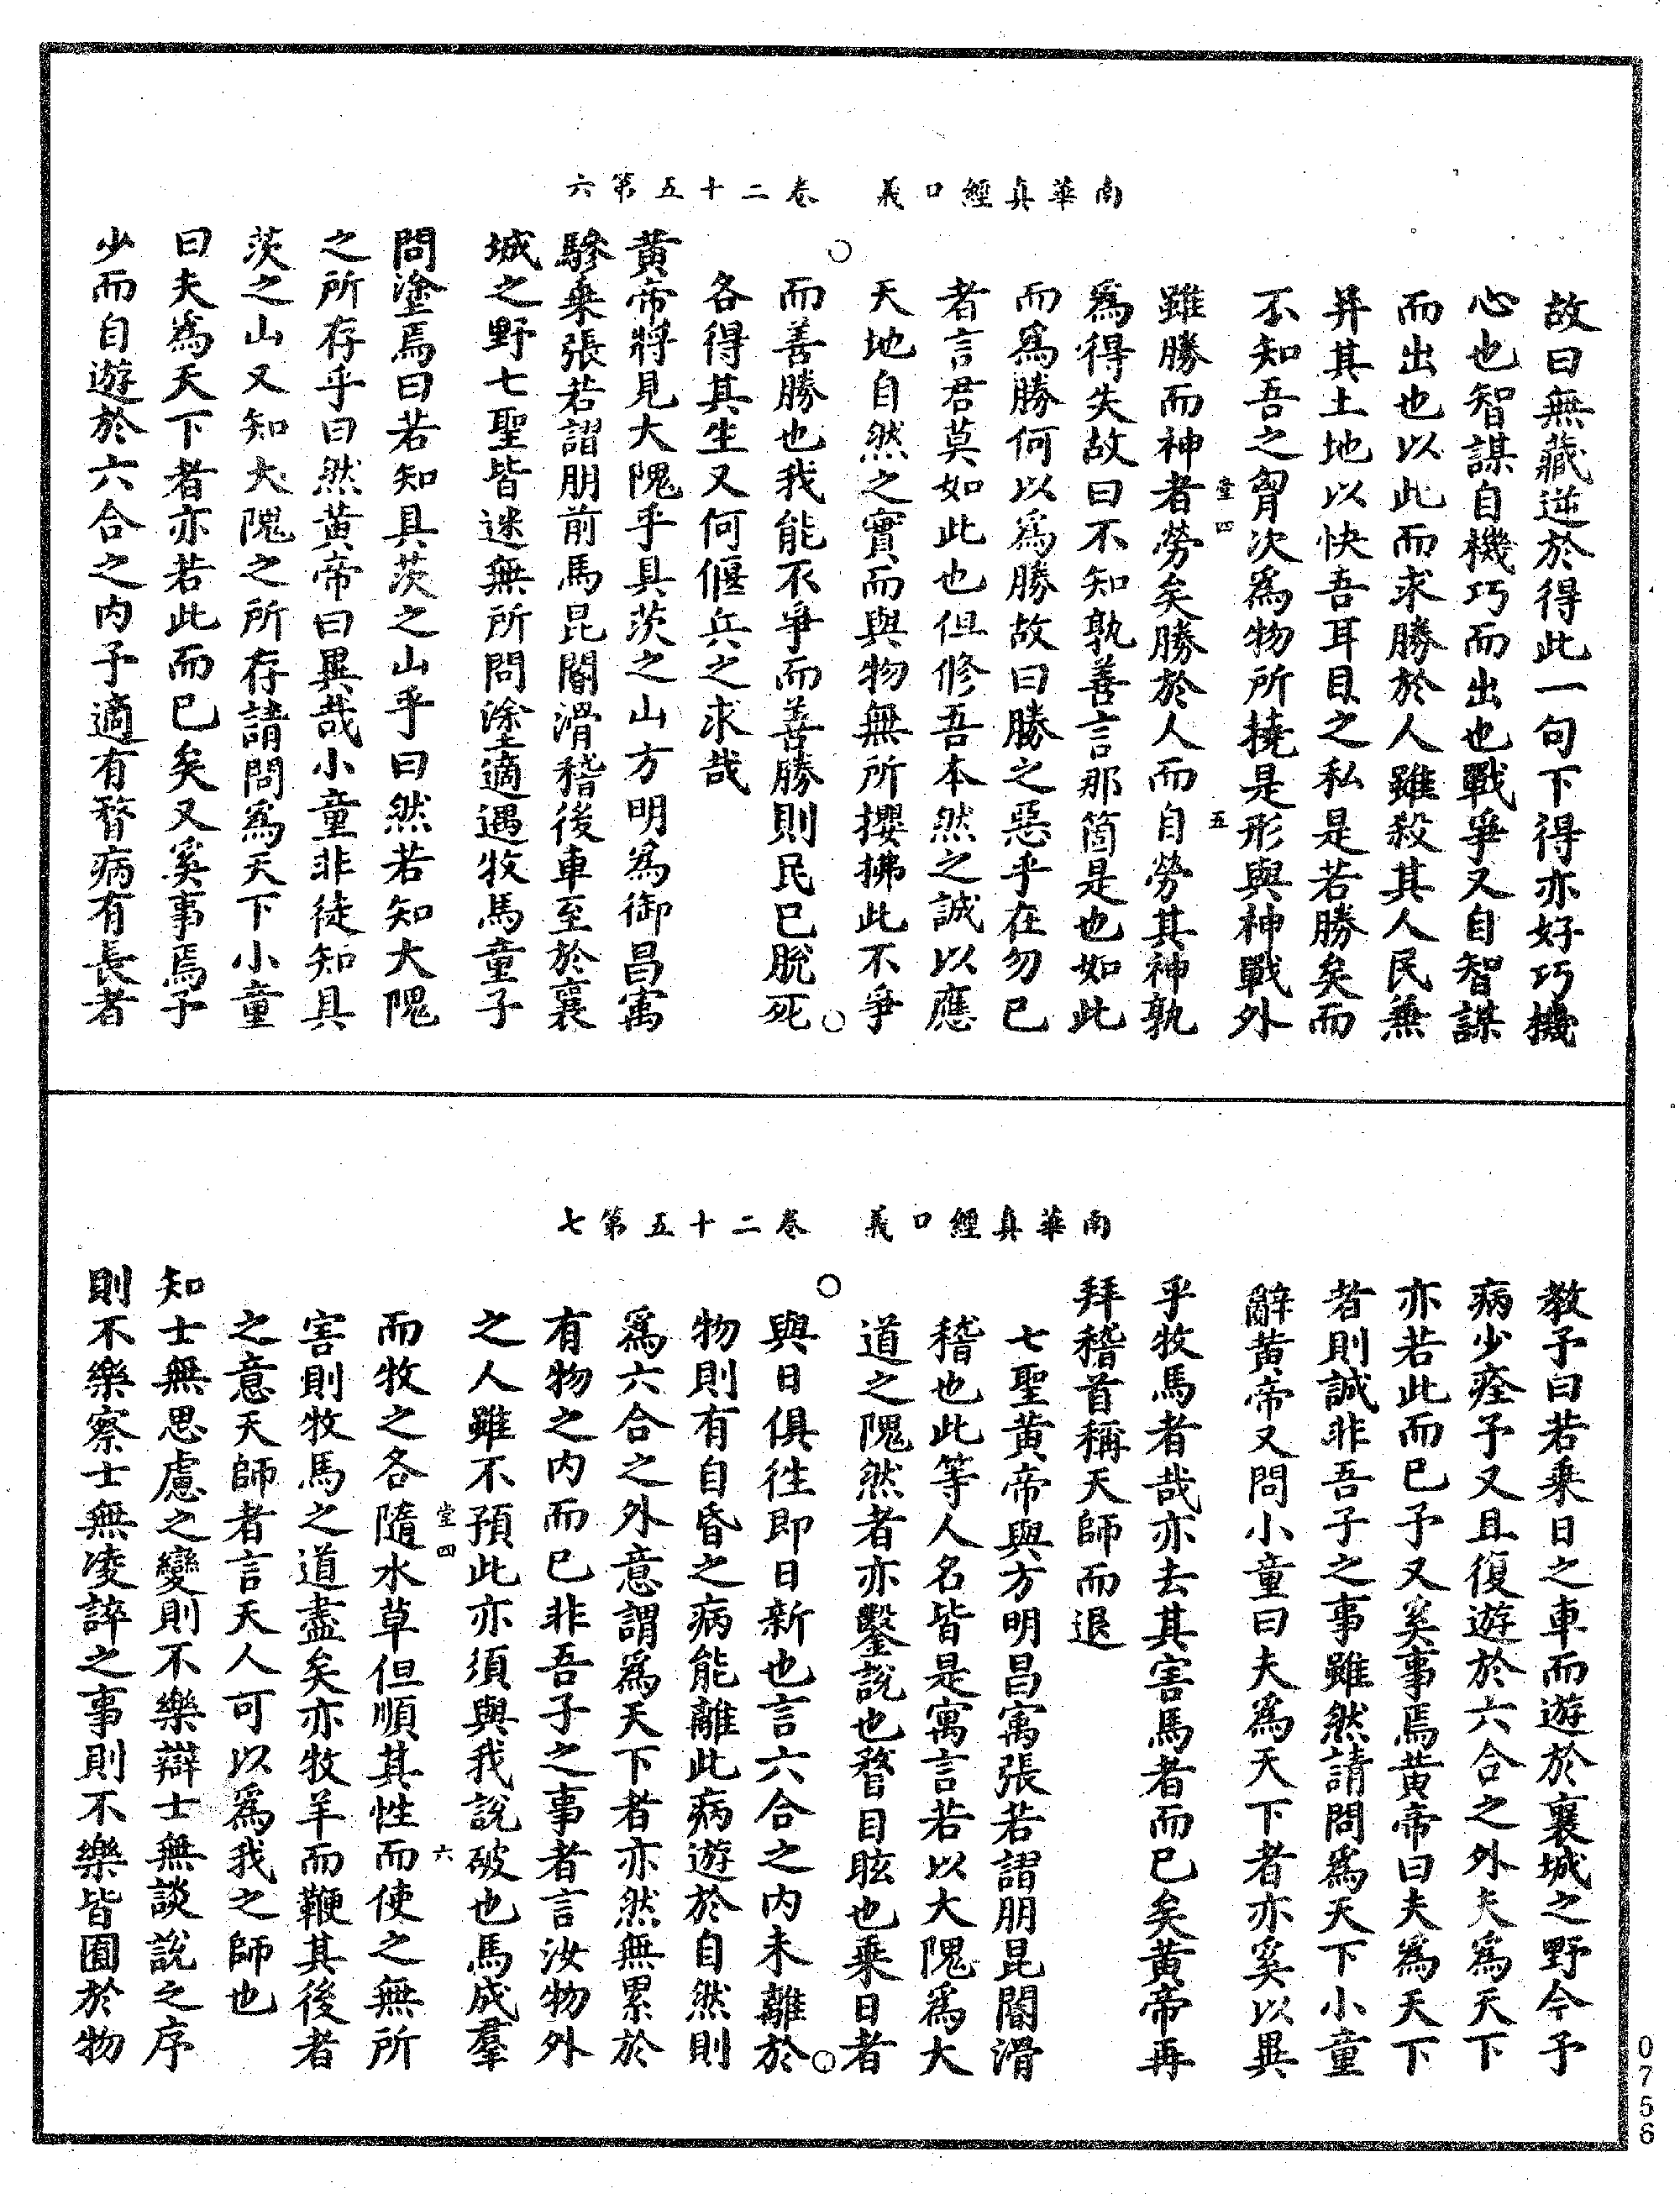 南華真經口義　卷二十五第六
故曰無藏逆於得此一句下得亦好巧機
心也智謀自機巧而出也戰爭又自智謀
而出也以此而求勝於人雖殺其人民兼
并其土地以快吾耳目之私是若勝矣而
不知吾之胷次為物所撓是形與神戰外
堂四　五
雖勝而神者勞矣勝於人而自勞其神孰
為得失故曰不知孰善言那箇是也如此
而為勝何以為勝故曰勝之惡乎在勿已
者言君莫如此也但修吾本然之誠以應
天地自然之實而與物無所攖拂此不爭
而善勝也我能不爭而善勝則民已脫死
各得其生又何偃兵之求哉
黃帝將見大隗乎具茨之山方明為御昌寓
驂乘張若謵朋前馬昆閽滑稽後車至於襄
城之野七聖皆迷無所問塗適遇牧馬童子
問塗焉曰若知具茨之山乎曰然若知大隗
之所存乎曰然黃帝曰異哉小童非徒知具
茨之山又知大隗之所存請問為天下小童
曰夫為天下者亦若此而已矣又奚事焉予
少而自遊於六合之內予適有瞀病有長者
南華真經口義　卷二十五第七
教予曰若乘日之車而遊於襄城之野今予
病少痊予又且復遊於六合之外夫為天下
亦若此而已予又奚事焉黃帝曰夫為天下
者則誠非吾子之事雖然請問為天下小童
辭黃帝又問小童曰夫為天下者亦奚以異
乎牧馬者哉亦去其害馬者而已矣黃帝再
拜稽首稱天師而退
七聖黃帝與方明昌寓張若謵朋昆閽滑
稽也此等人名皆是寓言若以大隗為大
道之隗然者亦鑿說也瞀目眩也乘日者
與日俱徃即日新也言六合之內未離於
物則有自昏之病能離此病遊於自然則
為六合之外意謂為天下者亦然無累於
有物之內而已非吾子之事者言汝物外
之人雖不預此亦須與我說破也馬成羣
堂四　六
而牧之各隨水草但順其性而使之無所
害則牧馬之道盡矣亦牧羊而鞭其後者
之意天師者言天人可以為我之師也
知士無思慮之變則不樂辯士無談說之序
則不樂察士無凌誶之事則不樂皆囿於物
0756